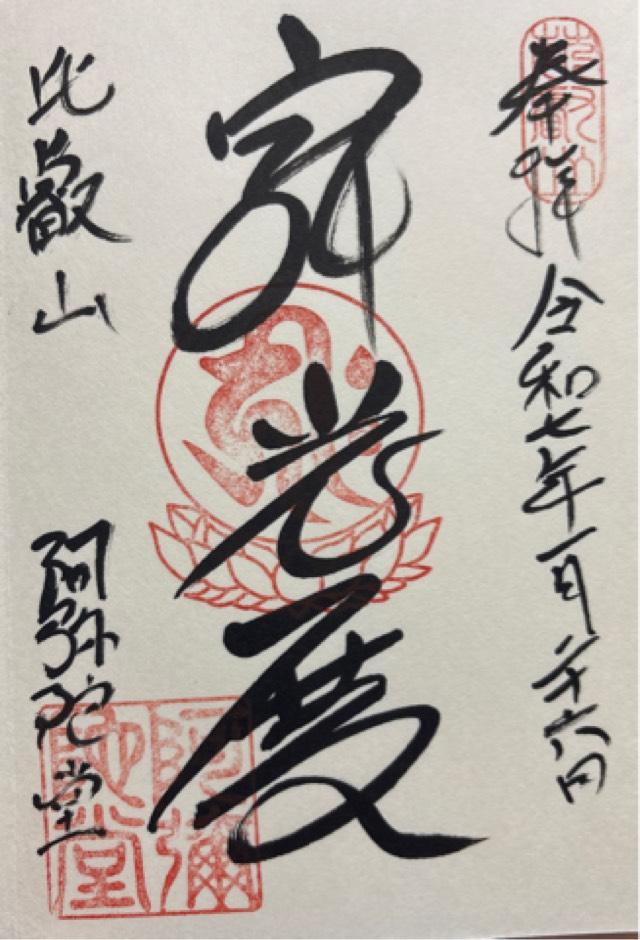 奉拝 令和七年一月二十六日
寂光
比叡山 阿弥陀堂
阿彌
陀堂